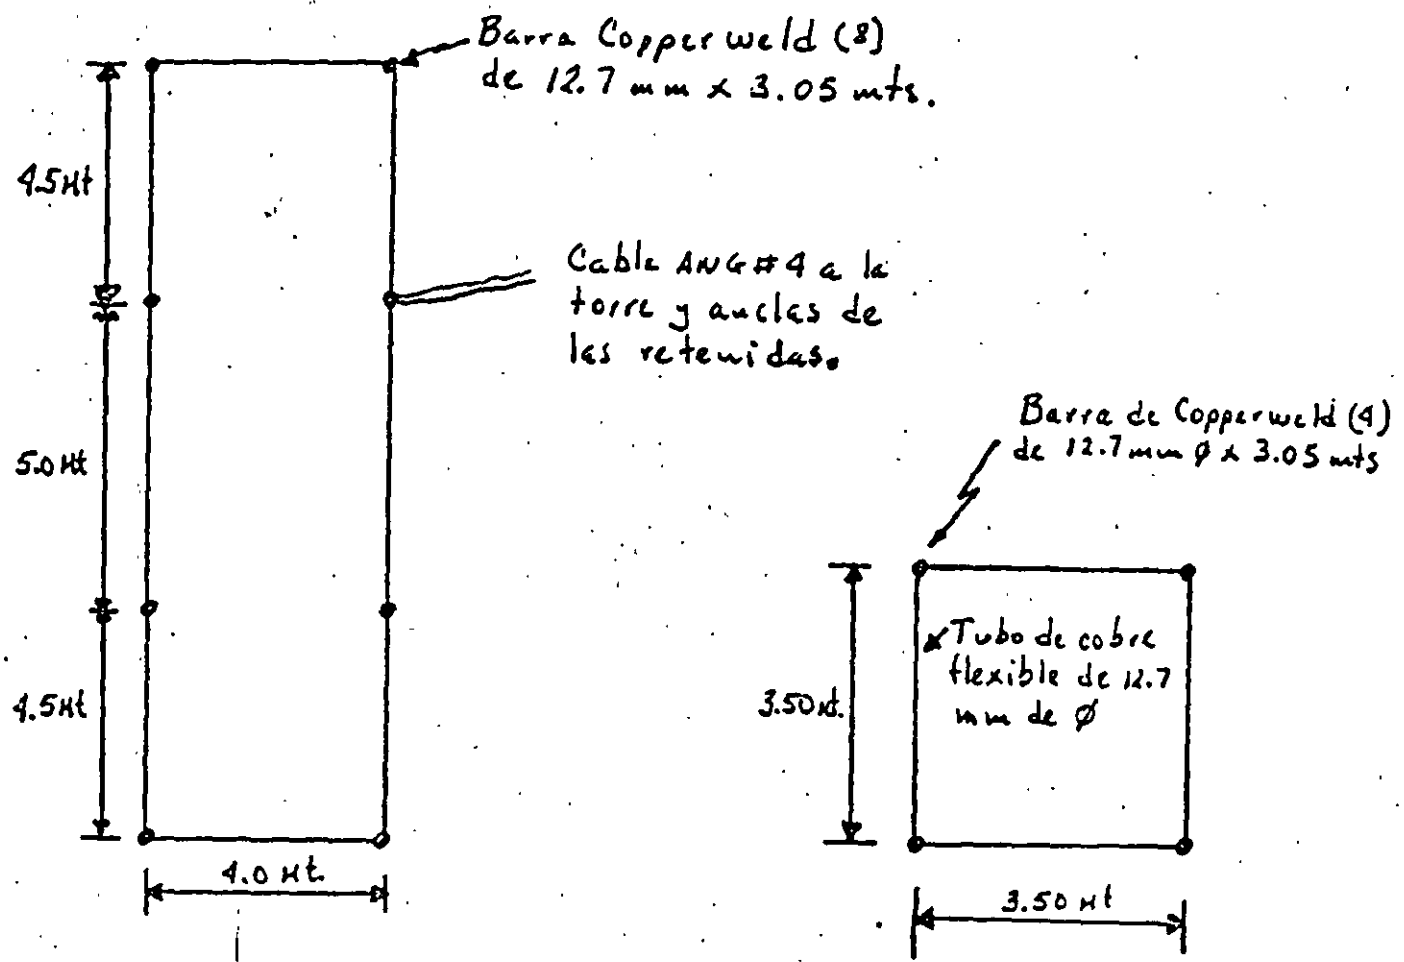 Barra Copperweld (8)
de 12.7 mm x 3.05 mts.
4.5 Mt
Cable AWG #4 a la
torre y anclas de
las retenidas.
5.0 Mt
Barra de Copperweld (4)
de 12.7 mm ø x 3.05 mts
Tubo de cobre
flexible de 12.7
mm de ø
4.5 Mt
3.50 Mt.
4.0 Mt.
3.50 Mt